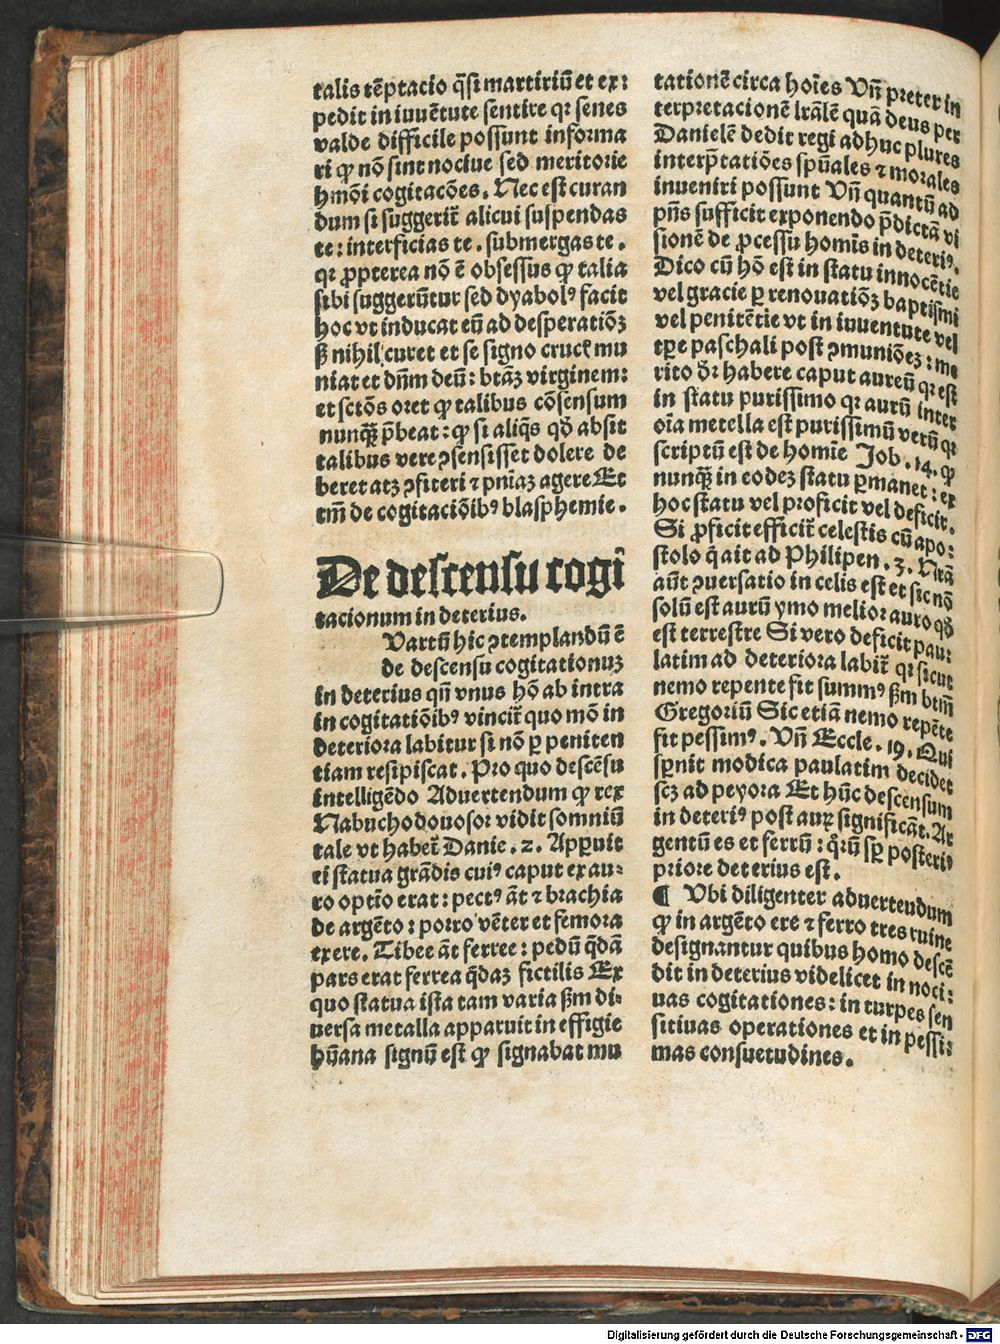 talis tēptacio q̄si martiriū et ex:
pedit in iuuētute sentire qꝛ senes
valde difficile possunt informa
ri ꝙ nō sint nociue sed meritorie
hmōi cogitacōes. Nec est curan
dum si suggerir̄ alicui suspendas
te: interficias te. submergas te.
qꝛ ꝓpterea nō ē obsessus ꝙ talia
sibi suggerūtur sed dyabolꝰ facit
hoc vt inducat eū ad desperatiōꝫ
ẞ nihil curet et se signo crucꝭ mu
niat et dn̄m deū: btāꝫ virginem:
et sctōs oret ꝙ talibus cōsensum
nunq̄ꝫ p̄beat: ꝙ si aliq̄s qð absit
talibus vere ꝯsensisset dolere de
beret atꝫ ꝯfiteri ⁊ pn̄iaꝫ agere Et
tm̄ de cogitaciōibꝰ blasphemie.
De descensu cogi
tacionum in deterius.
Vartū hic ꝯtemplandū ē
de descensu cogitationuꝫ
in deterius qn̄ vnus hō ab intra
in cogitatiōibꝰ vincir̄ quo mō in
deteriora labitur si nō ꝑ peniten
tiam resipiscat. Pro quo descēsu
intelligēdo Aduertendum ꝙ rex
Nabuchodouosor vidit somniū
tale vt haber̄ Danie. 2. Apꝑuit
ei statua grādis cuiꝰ caput ex au:
ro optīo erat: pectꝰ āt ⁊ brachia
de argēto: porro vēter et femora
ex ere. Tibee āt ferree: pedū q̄dā
pars erat ferrea q̄daꝫ fictilis Ex
quo statua ista tam varia ẞm di-
uersa metalla apparuit in effigie
hūana signū est ꝙ signabat mu
tationē circa hoīes Vn̄ preter in
terpretacionē lr̄alē quā deus per
Danielē dedit regi adhuc plures
interp̄tatiōes spūales ⁊ morales
inueniri possunt Vn̄ quantū ad
pn̄s sufficit exponendo p̄dictā vi
sionē de ꝓcessu homīs in deteriꝰ.
Dico cū hō est in statu innocētie
vel gracie ꝑ renouatiōꝫ baptismi
vel penitētie vt in iuuentute vel
tꝑe paschali post ꝯmuniōeꝫ: me
rito ðꝛ habere caput aureū qꝛ est
in statu purissimo qꝛ aurū inter
oīa metella est purissimū verū qꝛ
scriptū est de homīe Job. 14. ꝙ
nunq̄ꝫ in eodeꝫ statu ꝑmanet: ex
hoc statu vel proficit vel deficit.
Si ꝓficit efficir̄ celestis cū apo:
stolo q̄ ait ad Philipen. 3. Nr̄ā
aūt ꝯuersatio in celis est et sic nō
solū est aurū ymo melior auro qð
est terrestre Si vero deficit pau:
latim ad deteriora labir̄ qꝛ sicut
nemo repente fit summꝰ ẞm btm̄
Gregoriū Sic etiā nemo repēte
fit pessimꝰ. Vn̄ Eccle. 19. Qui
spernit modica paulatim decidet
scꝫ ad peyora Et hūc descensum
in deteriꝰ post auꝝ significāt. Ar
gentū es et ferrū: qr̄ū sꝑ posteriꝰ
priore deterius est.
¶ Vbi diligenter aduertendum
ꝙ in argēto ere ⁊ ferro tres ruine
designantur quibus homo descē
dit in deterius videlicet in noci:
uas cogitationes: in turpes sen
sitiuas operationes et in pessi:
mas consuetudines.
Digitalisierung gefördert durch die Deutsche Forschungsgemeinschaft - DFG